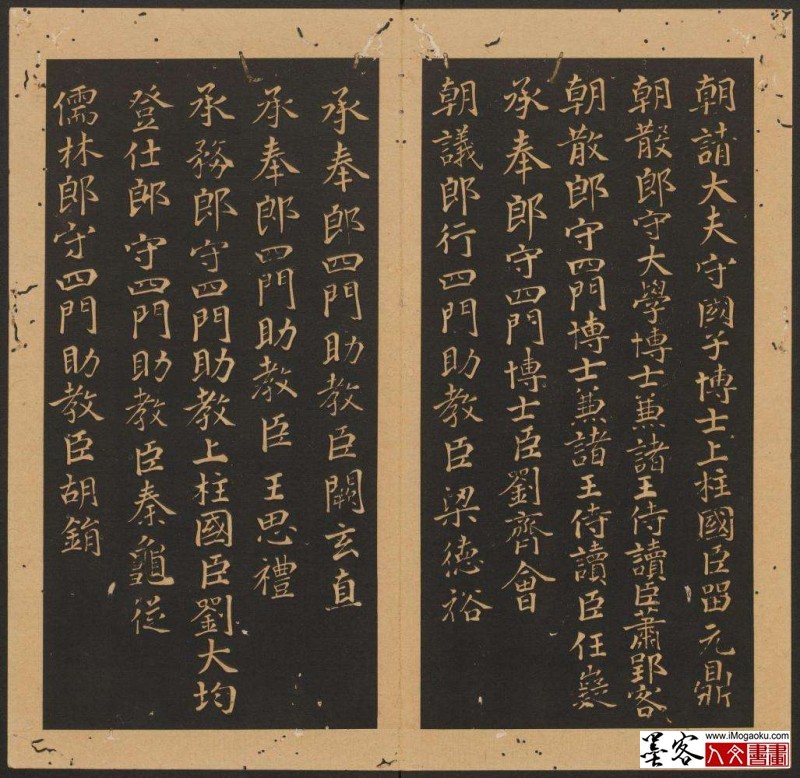 朝請大夫守國子博士上柱國臣留元鼎
朝散郎守大學博士兼諸王侍讀臣蕭郢客
朝散郎守四門博士兼諸王侍讀臣任嶷
承奉郎守四門博士臣劉齊會
朝議郎行四門助教臣梁德裕
承奉郎四門助教臣闞玄直
承奉郎四門助教臣王思禮
承務郎守四門助教上柱國臣劉大均
登仕郎守四門助教臣秦龜從
儒林郎守四門助教臣胡銷
墨客
www.iMogaoku.com
人文書畫